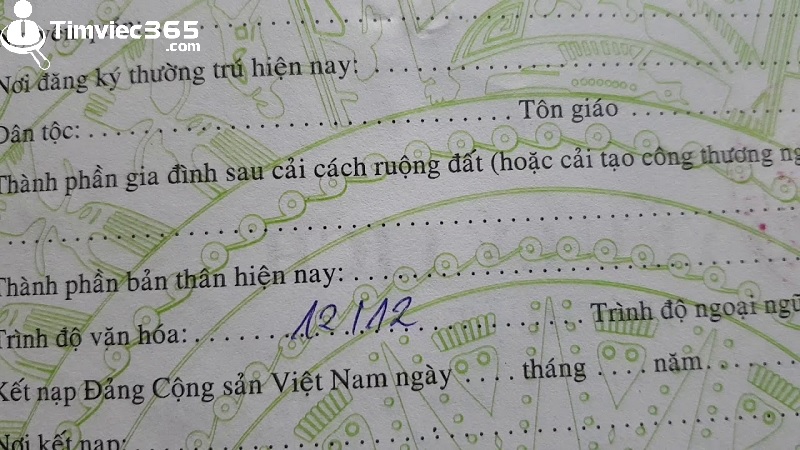 Timviec365
.com
Nơi đăng ký thường trú hiện nay:
Dân tộc: Tôn giáo
Thành phần gia đình sau cải cách ruộng đất (hoặc cải tạo công thương
Thành phần bản thân hiện nay:
Trình độ văn hóa: 12/12 Trình độ ngoại ngữ
Kết nạp Đảng Cộng sản Việt Nam ngày .... tháng .... năm
Nơi kết nạp: